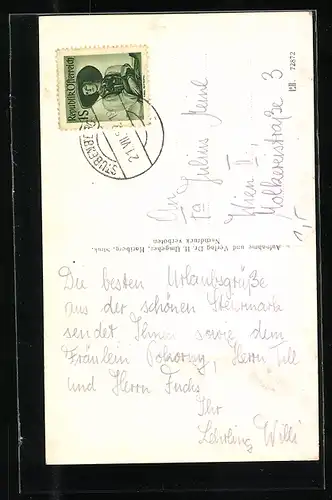 Republik Österreich
1S
STUBENBERG
21.VII.
I:II. 72872
An
Fa Julius Meinl
Wien II,
Molkereistraße 3
1,-
Aufnahme und Verlag Dr. H. Umgeher, Hartberg, Stmk.
Nachdruck verboten
Die besten Urlaubsgrüße
aus der schönen Steiermark
sendet Ihnen sowie dem
Fräulein Pokorny, Herrn Till
und Herrn Fuchs
Ihr
Lehrling Willi